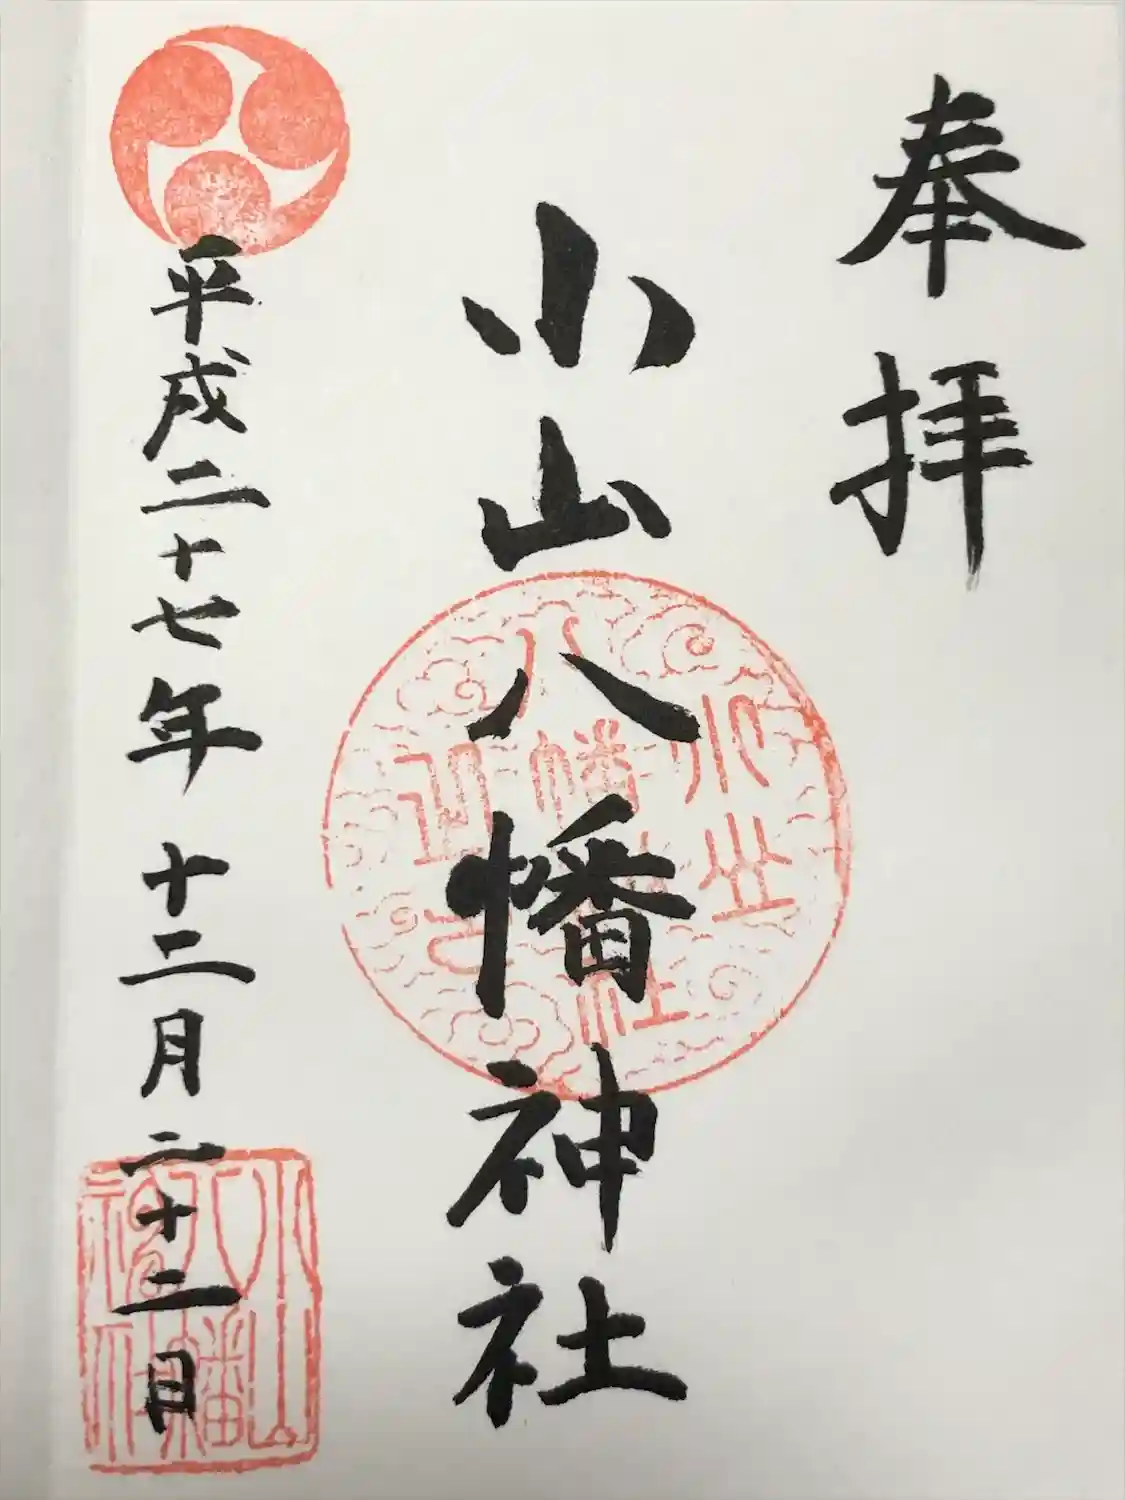 奉拝
小山八幡神社
平成二十七年 十二月二十二日
小山
八幡
神社